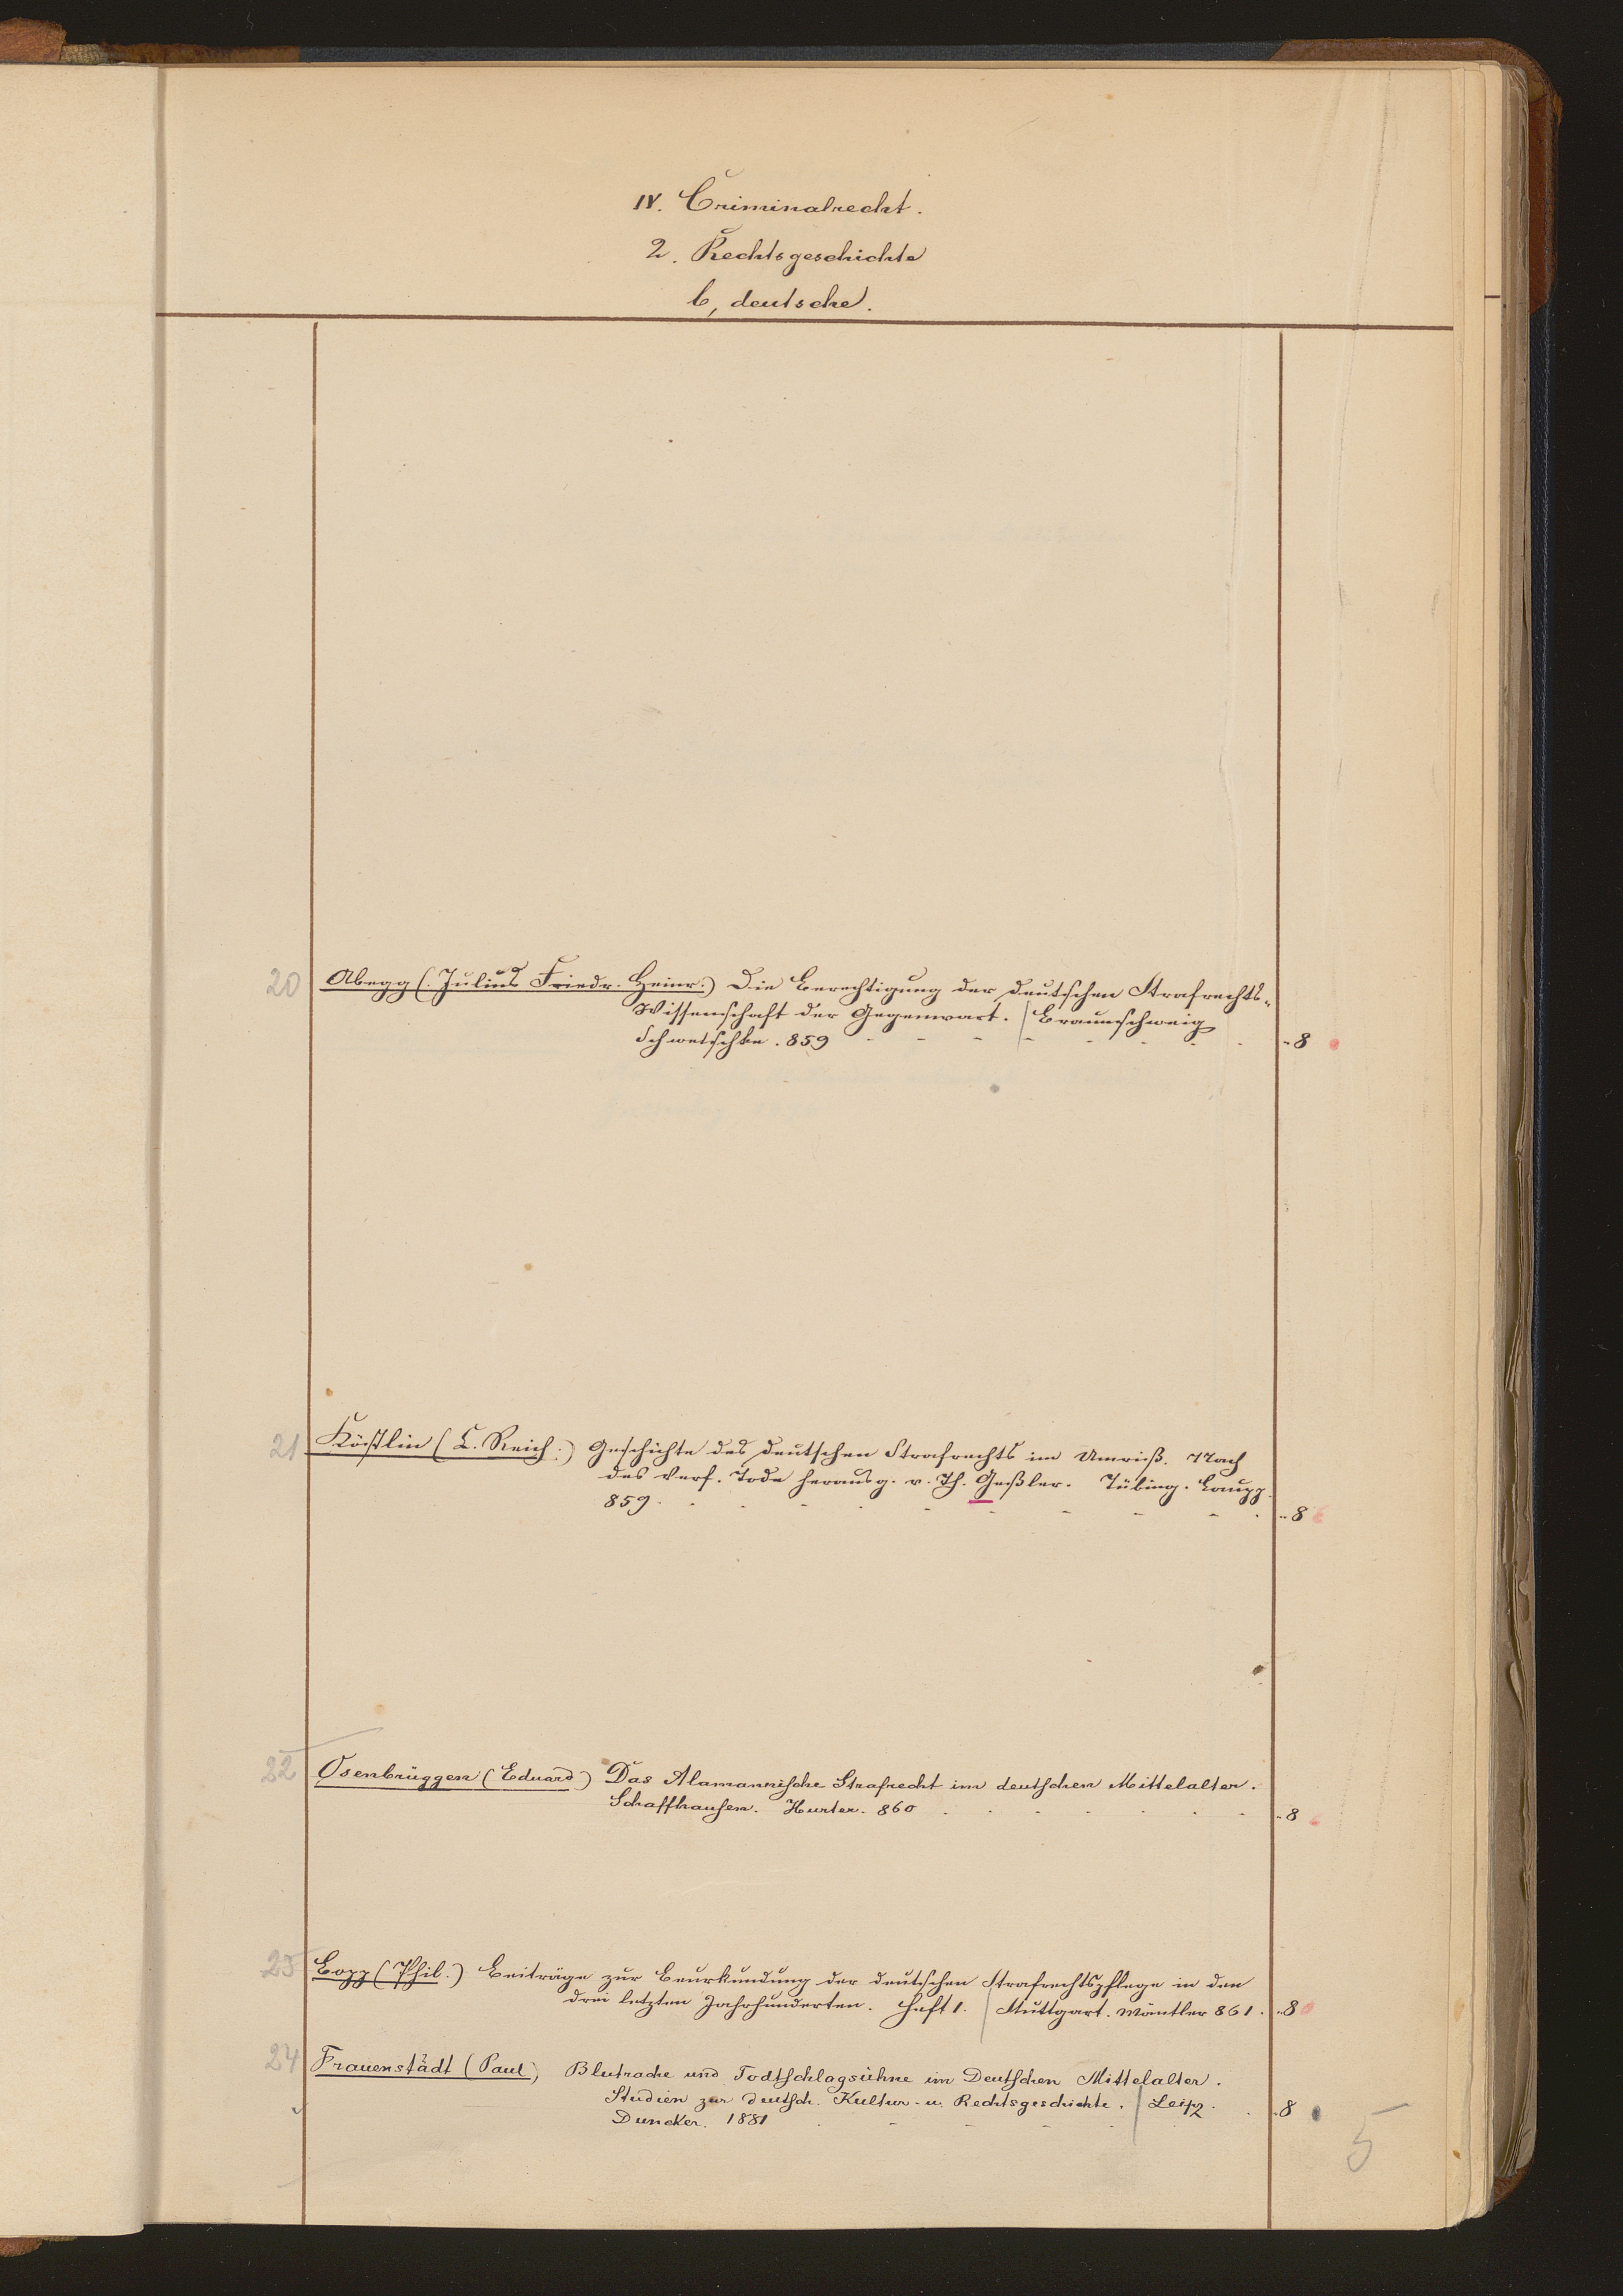 IV. Criminalrecht.
2. Rechtsgeschichte
b, deutsche.
20 Abegg (Julius Friedr. Heinr.) Die Berechtigung der deutschen Strafrechts-
Wissenschaft der Gegenwart. | Braunschweig
Schwetschke. 859 - - - - - - - - 8
21 Köstlin (C. Reinh.) Geschichte des deutschen Strafrechts im Umriß. Nach
des Verf. Tode herausg. v. Th. Geßler. Tübing. Laupp.
859. - - - - - - - - - 8
22 Osenbrüggen (Eduard) Das Alamannische Strafrecht im deutschen Mittelalter.
Schaffhausen. Hurter. 860 . . . . . . - 8
23 Bopp (Phil.) Beiträge zur Beurkundung der deutschen Strafrechtspflege in den
drei letzten Jahrhunderten. Heft 1. | Stuttgart. Mäntler 861. - 8
24 Frauenstädt (Paul), Blutrache und Todtschlagsühne im Deutschen Mittelalter.
Studien zur deutsch. Kultur- u. Rechtsgeschichte. | Leipz. - 8
Duncker. 1881
5